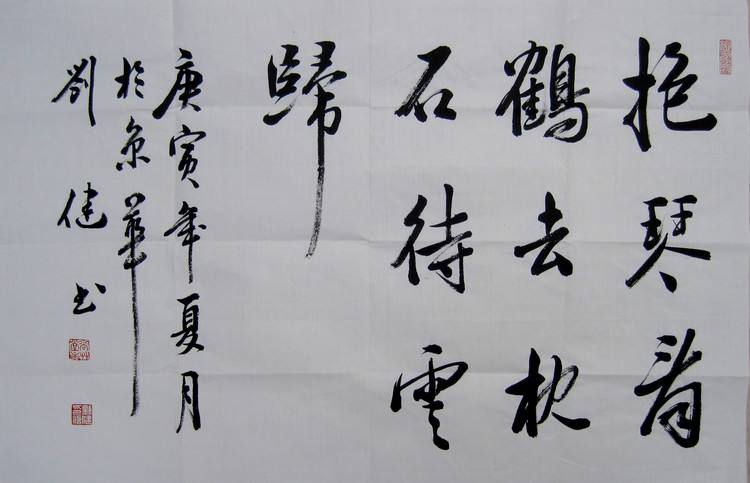 抱琴看
鶴去枕
石待雲
歸
庚寅年夏月
於京華
劉健书